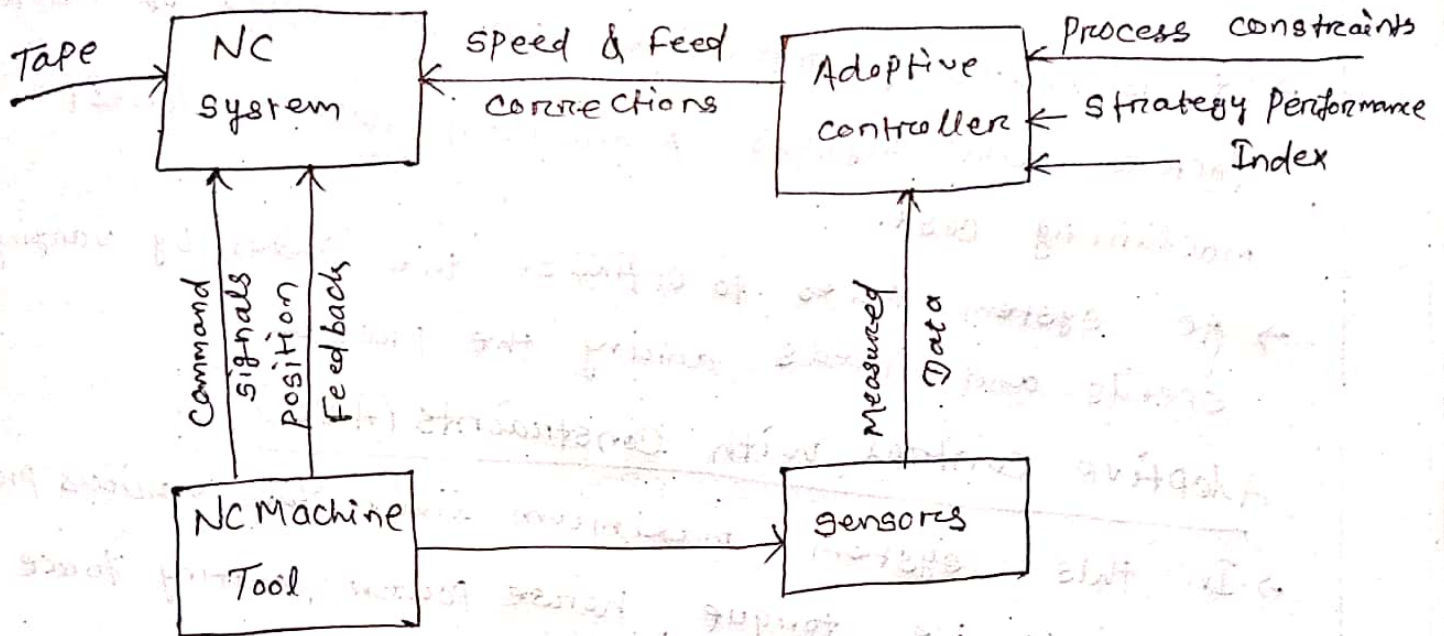 Tape
NC
system
speed & feed
connections
Adoptive
controller
Process constraints
Strategy Performance
Index
Command
signals
position
Feedbacks
Measured
Data
NC Machine
Tool
sensores